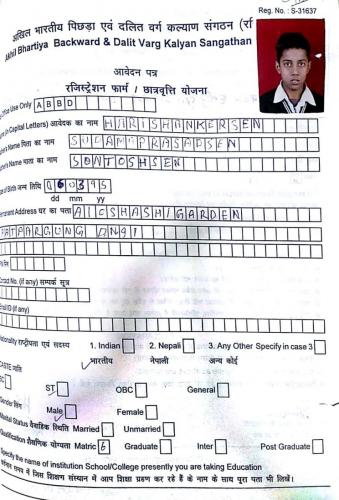 Reg. No. : S-31637
अखिल भारतीय पिछड़ा एवं दलित वर्ग कल्याण संगठन (रजि
Akhil Bhartiya Backward & Dalit Varg Kalyan Sangathan
आवेदन पत्र
रजिस्ट्रेशन फार्म / छात्रवृत्ति योजना
Office Use Only A B B D
(in Capital Letters) आवेदक का नाम HARISHANKERSEN
Father's Name पिता का नाम
Mother's Name माता का नाम SONTOSHSEN
Date of Birth जन्म तिथि 060395
dd mm yy
Permanent Address घर का पता A1CSHASHIGARDEN
PATPARGUNG DN91
पिन
Contact No. (if any) सम्पर्क सूत्र
Email ID (if any)
Nationality राष्ट्रीयता एवं सदस्य 1. Indian 2. Nepali 3. Any Other Specify in case 3
भारतीय नेपाली अन्य कोई
CASTE जाति
SC ST OBC General
Gender लिंग
Male Female
Marital Status वैवाहिक स्थिति Married Unmarried
Qualification शैक्षणिक योग्यता Matric 6 Graduate Inter Post Graduate
Specify the name of institution School/College presently you are taking Education
वर्तमान समय में जिस शिक्षण संस्थान में आप शिक्षा ग्रहण कर रहे हैं के नाम के साथ पूरा पता भी लिखें।